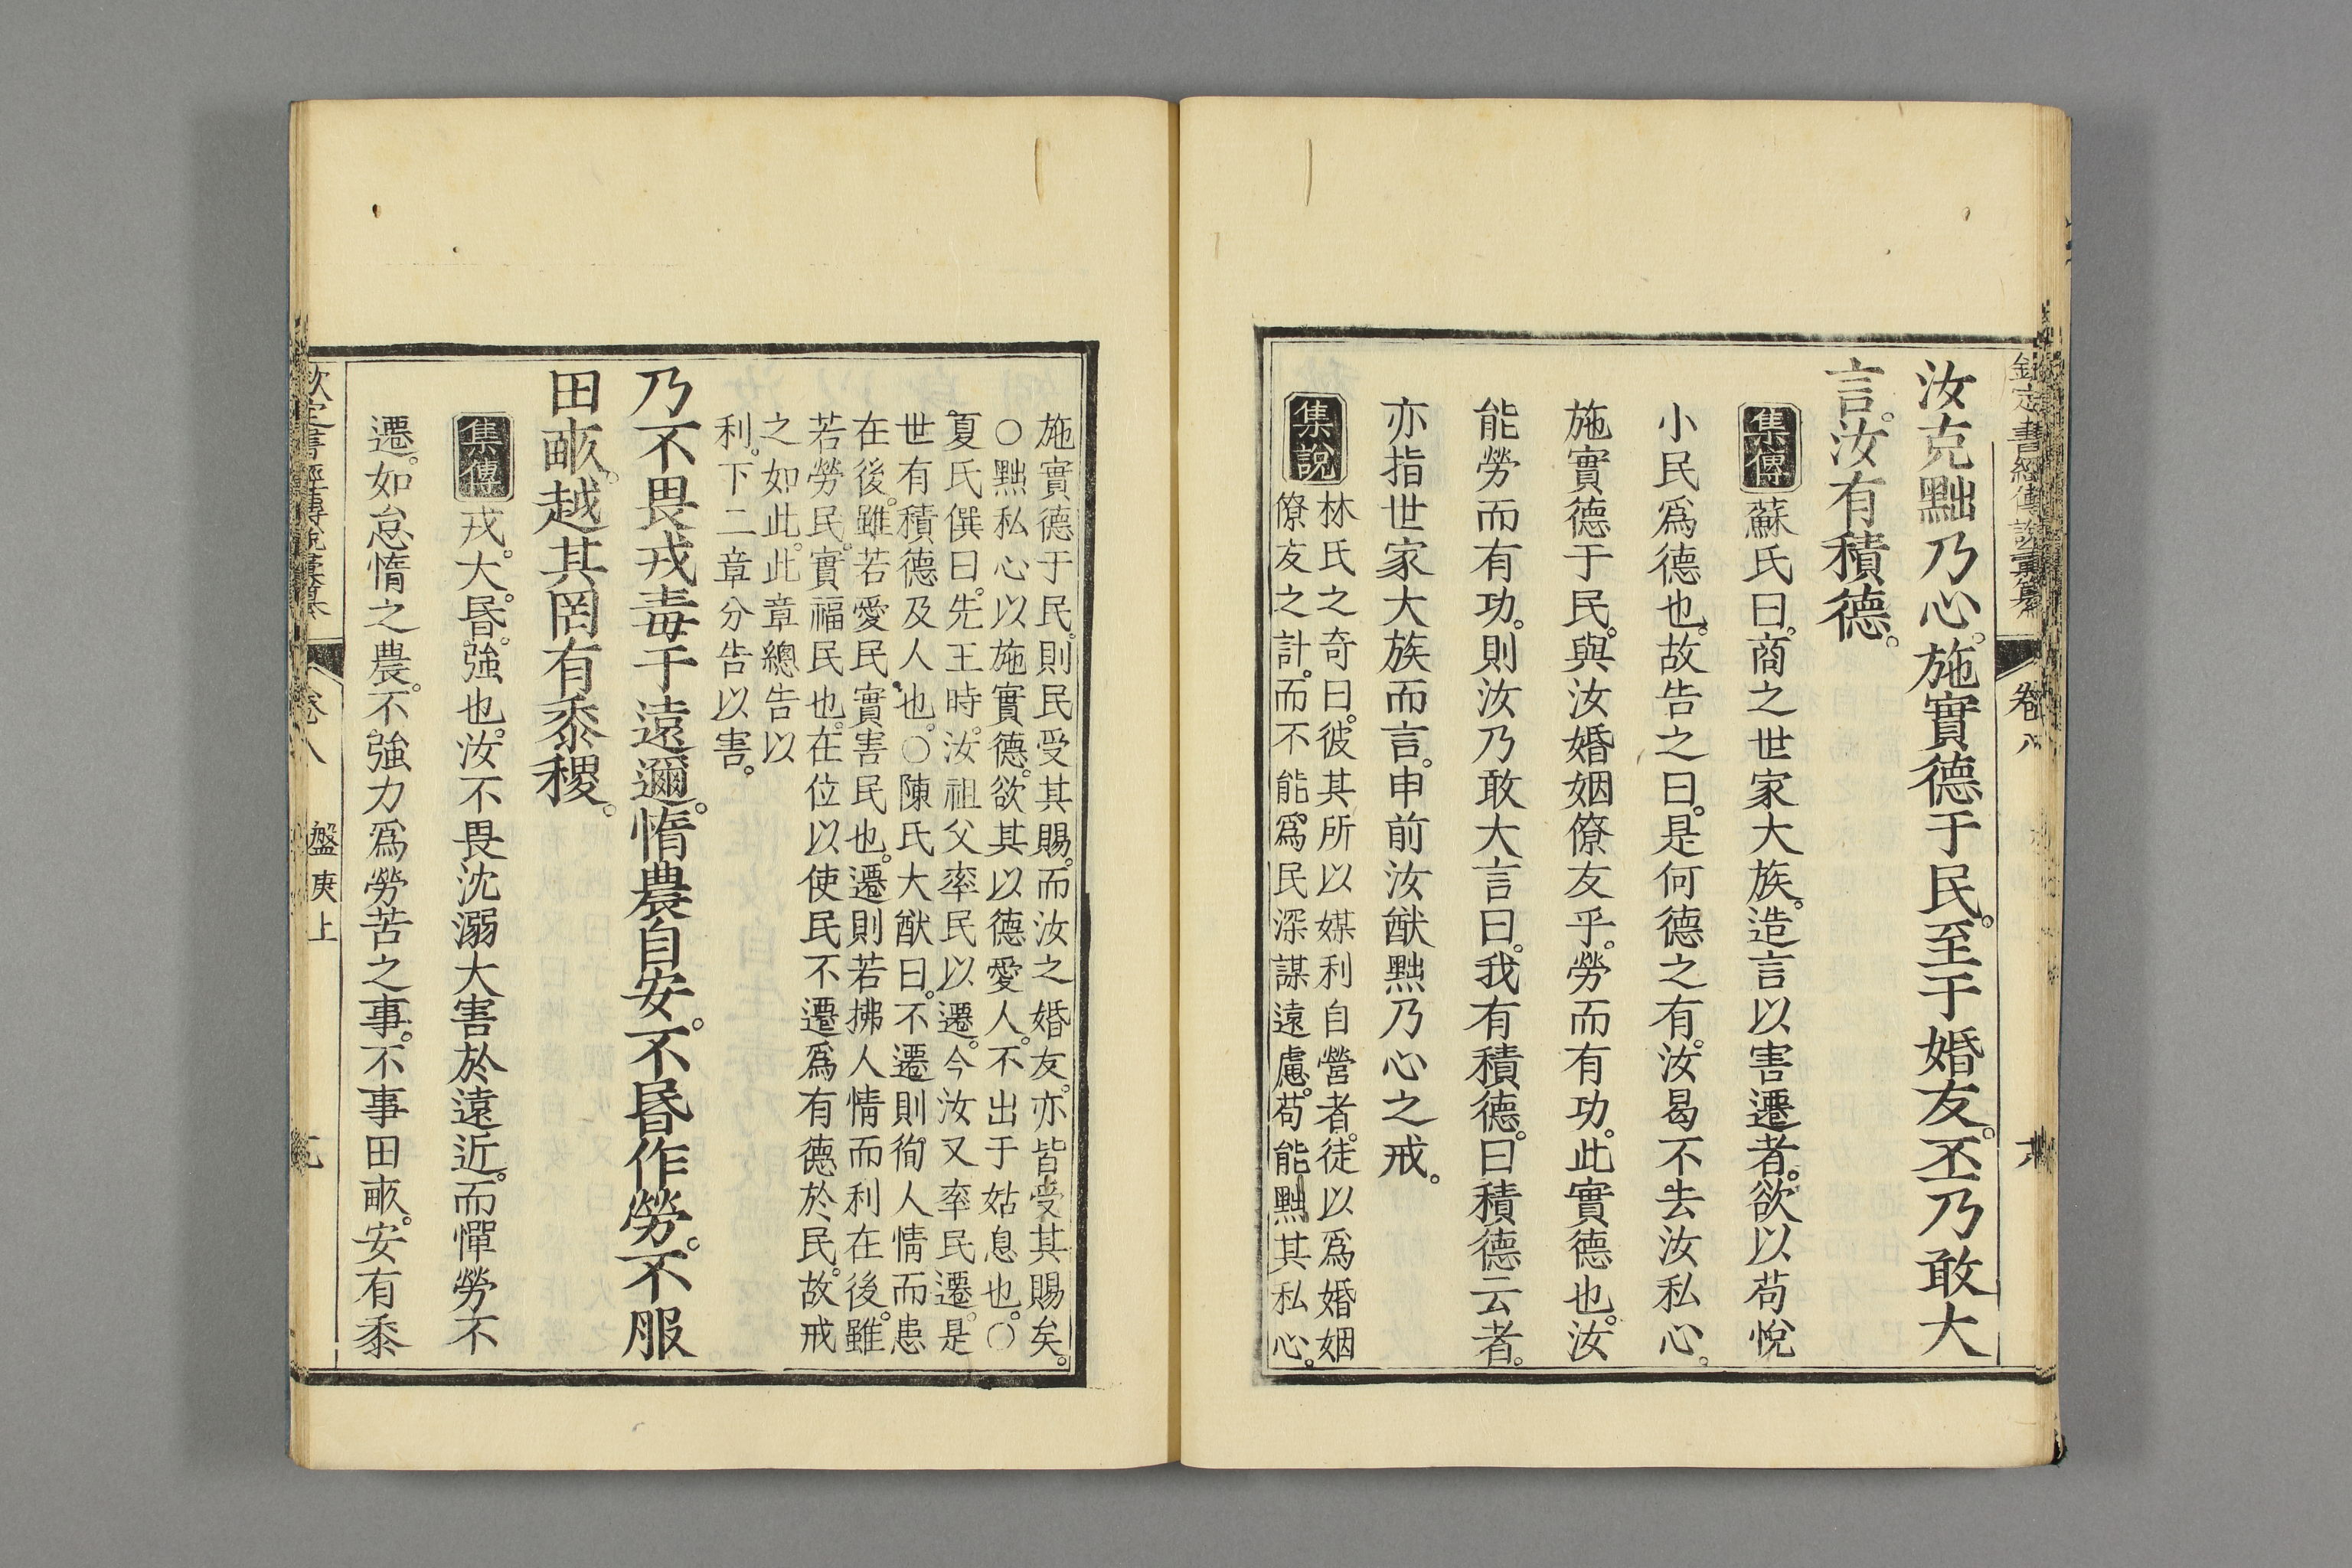 欽定書經傳說彙纂 卷八
汝克黜乃心。施實德于民。至于婚友。丕乃敢大
言。汝有積德。
集傳 蘇氏曰。商之世家大族。造言以害遷者。欲以苟悅
小民爲德也。故告之曰。是何德之有。汝曷不去汝私心。
施實德于民。與汝婚姻僚友乎。勞而有功。此實德也。汝
能勞而有功。則汝乃敢大言曰。我有積德。曰積德云者。
亦指世家大族而言。申前汝猷黜乃心之戒。
集說 林氏之奇曰。彼其所以媒利自營者。徒以爲婚姻
僚友之計。而不能爲民深謀遠慮。苟能黜其私心。
施實德于民。則民受其賜。而汝之婚友。亦皆受其賜矣。
○黜私心以施實德。欲其以德愛人。不出于姑息也。○
夏氏僎曰。先王時。汝祖父率民以遷。今汝又率民遷。是
世有積德及人也。○陳氏大猷曰。不遷則徇人情而患
在後。雖若愛民。實害民也。遷則若拂人情而利在後。雖
若勞民。實福民也。在位以使民不遷爲有德於民。故戒
之如此。此章總告以
利。下二章分告以害。
乃不畏戎毒于遠邇。惰農自安。不昬作勞。不服
田畝。越其罔有黍稷。
集傳 戎。大。昬。強也。汝不畏沈溺大害於遠近。而憚勞不
遷。如怠惰之農。不強力爲勞苦之事。不事田畝。安有黍
欽定書經傳說彙纂 卷八 盤庚上